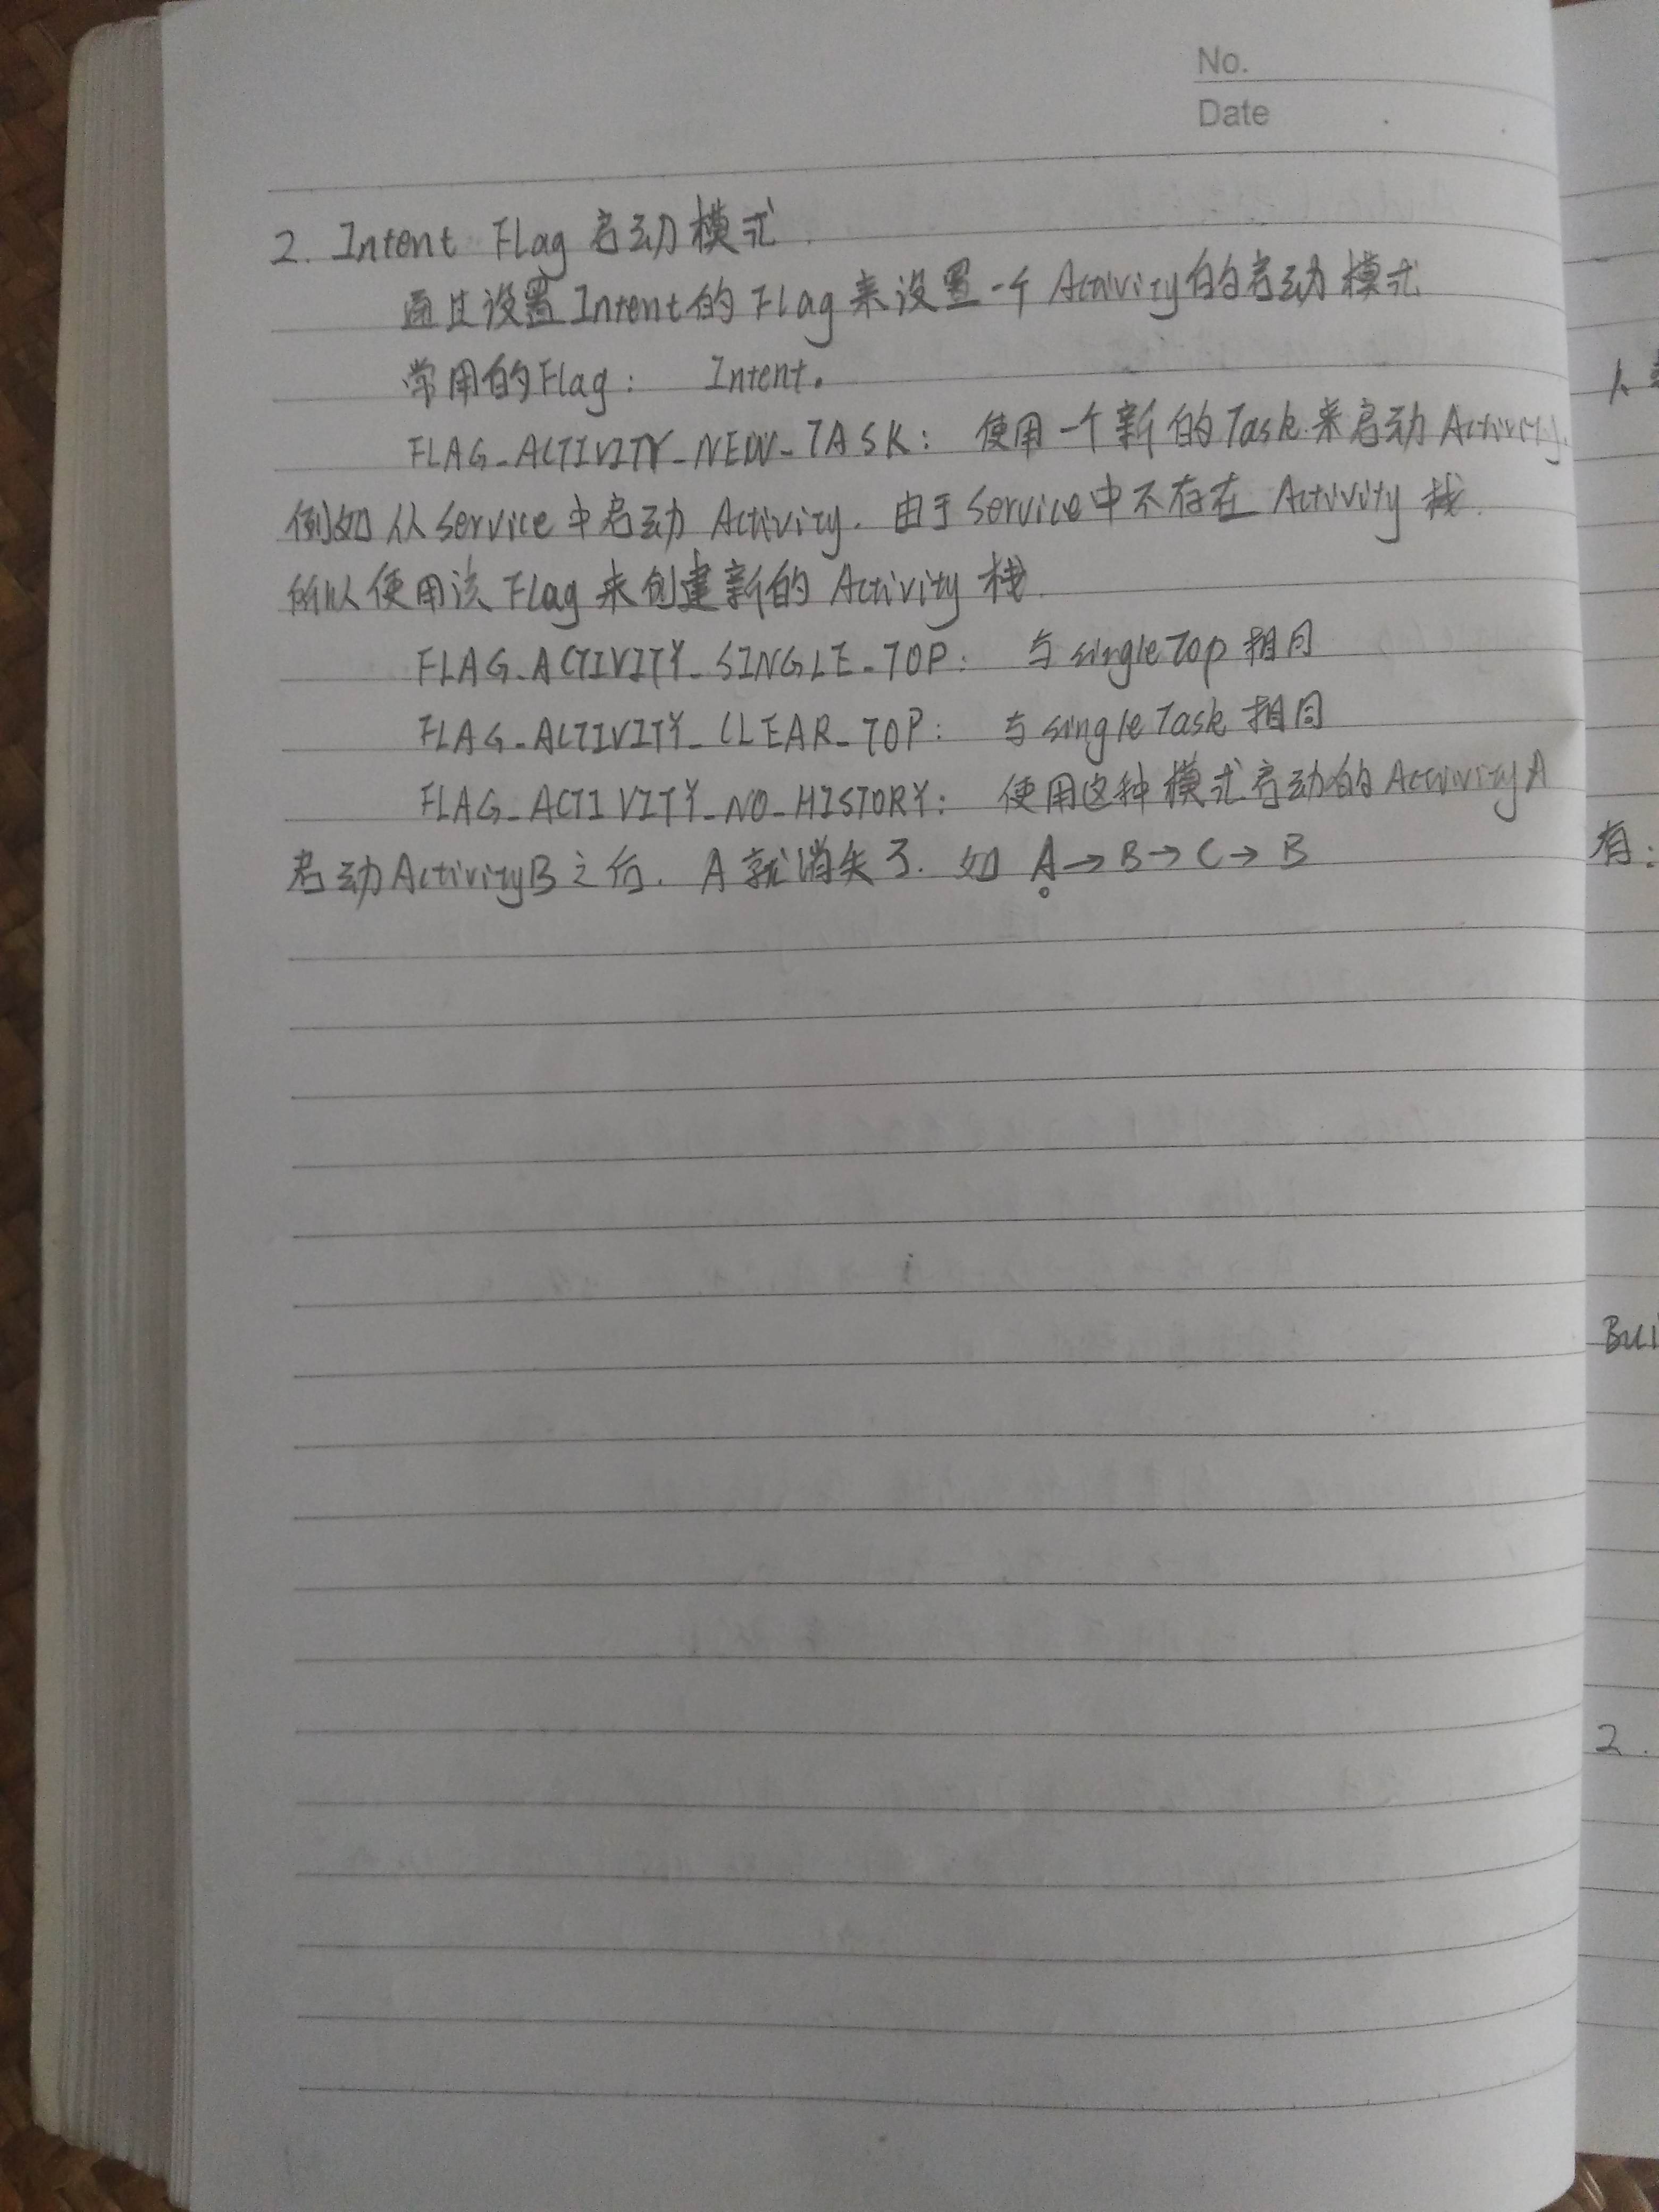 No.
Date
2. Intent Flag启动模式.
通过设置Intent的Flag来设置一个Activity的启动模式
常用的Flag: Intent.
FLAG_ACTIVITY_NEW_TASK: 使用一个新的Task来启动Activity.
例如从Service中启动Activity. 由于Service中不存在Activity栈.
所以使用该Flag来创建新的Activity栈.
FLAG_ACTIVITY_SINGLE_TOP: 与singleTop相同
FLAG_ACTIVITY_CLEAR_TOP: 与singleTask相同
FLAG_ACTIVITY_NO_HISTORY: 使用这种模式启动的ActivityA
启动ActivityB之后. A就消失了. 如 A→B→C→B
有:
Bui
2.